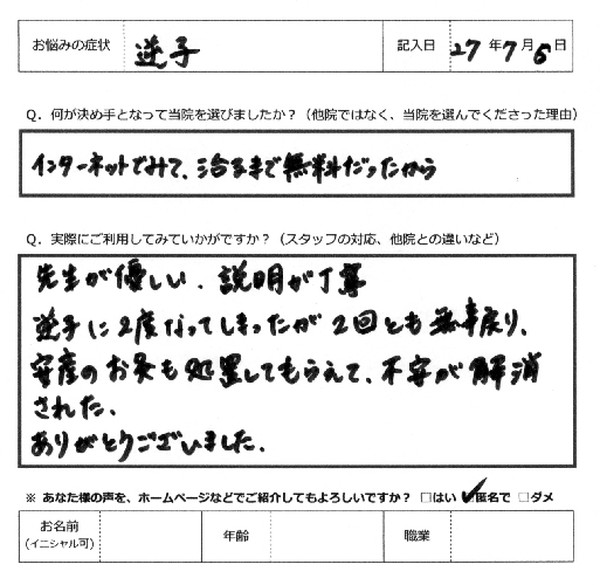 お悩みの症状 逆子 記入日 27年7月6日
Q．何が決め手となって当院を選びましたか？（他院ではなく、当院を選んでくださった理由）
インターネットでみて、治るまで無料だったから
Q．実際にご利用してみていかがですか？（スタッフの対応、他院との違いなど）
先生が優しい、説明が丁寧
逆子に2度なってしまったが2回とも無事戻り、
安産のお灸も処置してもらえて、不安が解消
された、
ありがとうございました。
※ あなた様の声を、ホームページなどでご紹介してもよろしいですか？ □はい ✓匿名で □ダメ
お名前 年齢 職業
(イニシャル可)